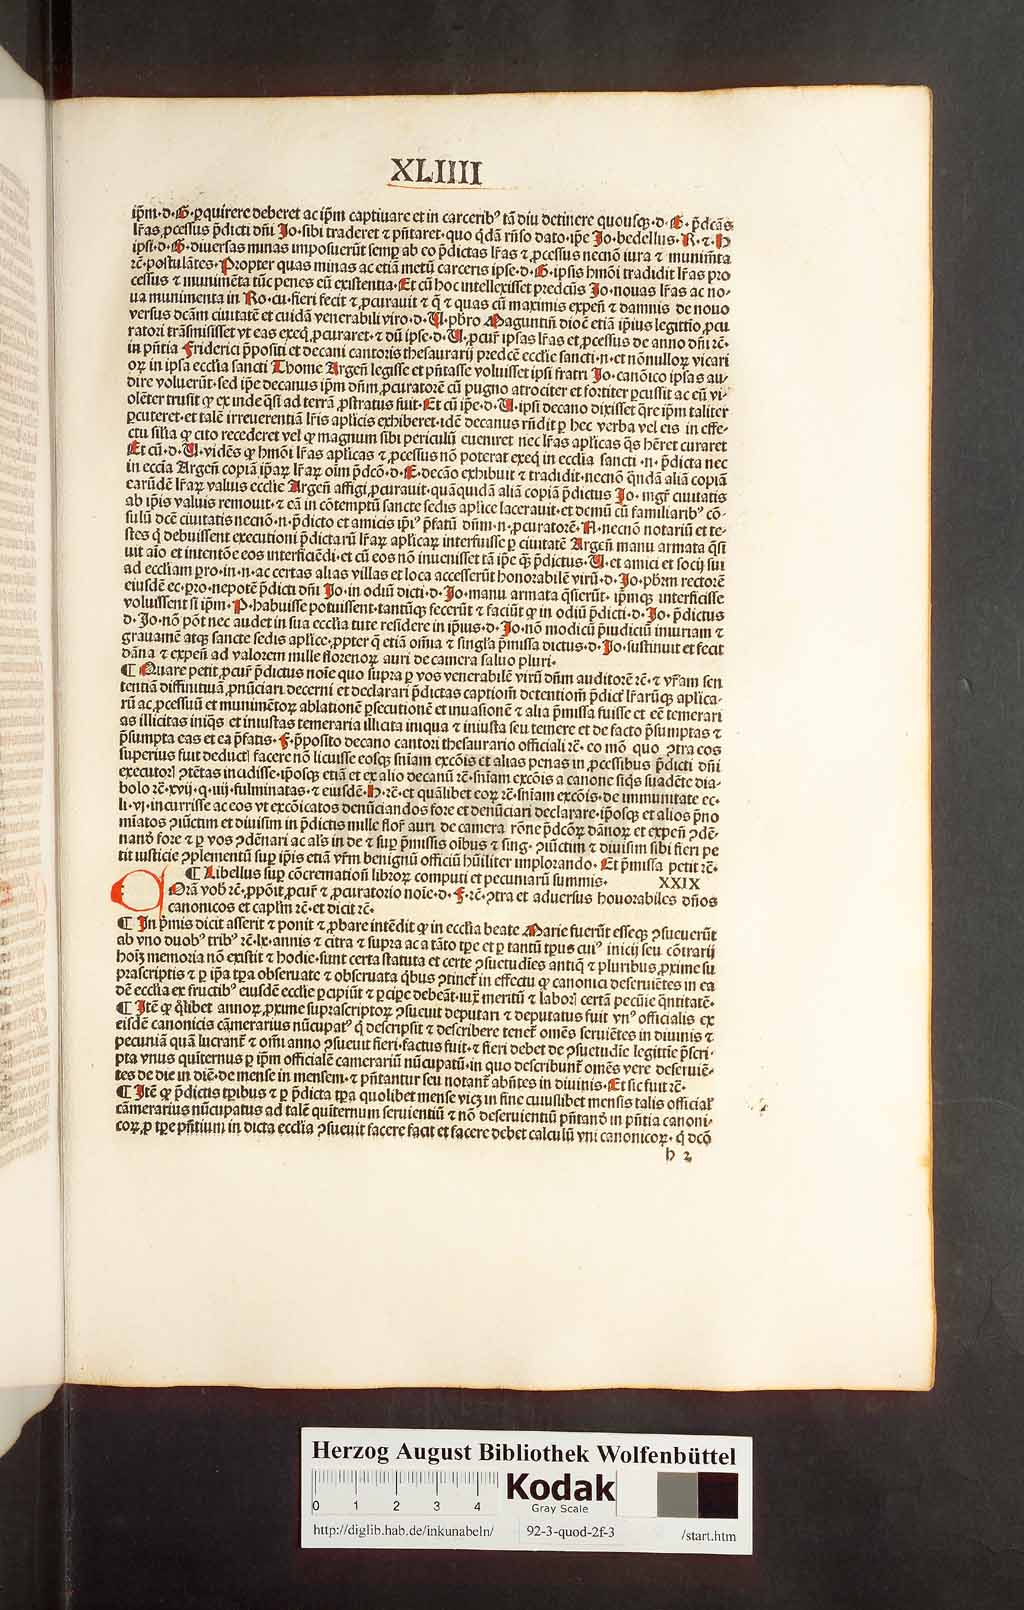 XLIIII
ip̄m·d·G·ꝑquirere deberet ac ip̄m captiuare et in carcerib⁹ tā diu detinere quousqꝫ·d·G·p̄dcās
lr̄as ꝓcessus p̄dicti dn̄i Jo·sibi traderet ⁊ pn̄taret·quo q̄dā rn̄so dato·ip̄e Jo·bedellus·R·⁊·H
ipsi·d·G·diuersas minas imposuerūt semꝑ ab eo p̄dictas lr̄as ⁊ ꝓcessus necnō iura ⁊ munimēta
rc̄·postulātes·Propter quas minas ac etiā metū carceris ipse·d·G·ipsis hmōi tradidit lr̄as pro
cessus ⁊ munimēta tūc penes eū existentia·Et cū hoc intellexisset predcūs Jo·nouas lr̄as ac no-
ua munimenta in Ro·cu·fieri fecit ⁊ ꝓcurauit ⁊ q̄ ⁊ quas cū maximis expen̄ ⁊ damnis de nouo
versus dcām ciuitatē et cuidā venerabili viro·d·U·pb̄ro Maguntin̄ dioc̄ etiā ip̄ius legittīo ꝓcu
ratori trāsmisisset vt eas exeq̄ ꝓcuraret·⁊ dū ipse·d·U·ꝓcur̄ ipsas lr̄as et ꝓcessus de anno dn̄i rc̄·
in pn̄tia Friderici p̄positi et decani cantoris thesaurarij predcē ecclie sancti·n·et nōnulloꝝ vicari
oꝝ in ipsa ecclia sancti Thome Argen̄ legisse et pn̄tasse voluisset ipsi fratri Jo·canōico ipsas au-
dire voluerūt·sed ip̄e decanus ip̄m dn̄m ꝓcuratorē cū pugno atrociter et fortiter ꝑcussit ac eū vi-
olēter trusit ꝙ ex inde q̄si ad terrā ꝓstratus fuit·Et cū ip̄e·d·U·ipsi decano dixisset q̄re ip̄m taliter
ꝑcuteret·et talē irreuerentiā lr̄is aplīcis exhiberet·idē decanus rn̄dit ꝑ hec verba vel eis in effe-
ctu silīa ꝙ cito recederet vel ꝙ magnum sibi periculū eueniret nec lr̄as aplīcas q̄s hēret curaret
Et cū·d·U·vidēs ꝙ hmōi lr̄as aplīcas ⁊ ꝓcessus nō poterat exeq̄ in ecclia sancti·n·p̄dicta nec
in eccīa Argen̄ copiā ip̄aꝝ lr̄aꝝ oīm p̄dcō·d·F·decāo exhibuit ⁊ tradidit·necnō q̄ndā aliā copiā
earūdē lr̄aꝝ valuis ecclie Argen̄ affigi ꝓcurauit·quā quidā aliā copiā p̄dictus Jo·mgr̄ ciuitatis
ab ip̄is valuis remouit·⁊ eā in cōtemptū sancte sedis aplīce lacerauit·et demū cū familiarib⁹ cō-
sulū dcē ciuitatis necnō·n·p̄dicto et amicis ip̄i⁹ p̄fatū dn̄m·n·ꝓcuratorē·A·necnō notariū et te-
stes q̄ debuissent executioni p̄dictarū lr̄aꝝ aplīcaꝝ interfuisse ꝑ ciuitatē Argen̄ manu armata q̄si
uit aīo et intentōe eos interficiēdi·et cū eos nō inuenisset tā ip̄e qꝫ p̄dictus·U·et amici et socij sui
ad eccliam ꝑro·in·n·ac certas alias villas et loca accesserūt honorabilē virū·d·Jo·pb̄rm rectorē
eiusdē ec·ꝑro·nepotē p̄dicti dn̄i Jo·in odiū dicti·d·Jo·manu armata q̄sierūt·ip̄mqꝫ interficisse
voluissent si ip̄m·P·habuisse potuissent·tantūqꝫ fecerūt ⁊ faciūt ꝙ in odiū p̄dicti·d·Jo·p̄dictus
d·Jo·nō pōt nec audet in sua ecclia tute residere in ip̄ius·d·Jo·nō modicū p̄iudiciū iniuriam ⁊
grauamē atqꝫ sancte sedis aplīce·ꝓpter q̄ etiā oīa ⁊ singla p̄missa dictus·d·Jo·sustinuit et fecit
dāna ⁊ expen̄ ad valorem mille florenoꝝ auri de camera saluo pluri·
¶ Quare petit ꝓcur̄ p̄dictus noīe quo supra ꝑ vos venerabilē virū dn̄m auditorē rc̄·⁊ vr̄am sen
tentiā diffinitiuā ꝓnūciari decerni et declarari p̄dictas captiōm̄ detentiōm̄ p̄dict̄ lr̄arūqꝫ aplīca-
rū ac ꝓcessuū et munimētoꝝ ablationē ꝑsecutionē et inuasionē ⁊ alia p̄missa fuisse et eē temerari
as illicitas iniq̄s et iniustas temeraria illicita iniqua ⁊ iniusta seu temere et de facto p̄sumptas ⁊
p̄sumpta eas et ea p̄fatis·F·p̄posito decano cantori thesaurario officiali rc̄·eo mō quo ꝯtra eos
superius fuit deduct̄ facere nō licuisse eosqꝫ sn̄iam excōis et alias penas in ꝓcessibus p̄dicti dn̄i
executor̄ ꝯtētas incidisse·ip̄osqꝫ etiā et ex alio decanū rc̄·sn̄iam excōis a canone siq̄s suadēte dia-
bolo rc̄·xvij·q·iiij·fulminatas·⁊ eiusdē·H·rc̄·et quālibet eoꝝ rc̄·sn̄iam excōis·de immunitate ec-
li·vj·incurrisse ac eos vt excōicatos denūciandos fore et denūciari declarare·ip̄osqꝫ et alios p̄no
miatos ꝯiūctim et diuisim in p̄dictis mille flor̄ auri de camera rōne p̄dcōꝝ dānoꝝ et expen̄ ꝯdē-
nanđ fore ⁊ ꝑ vos ꝯdēnari ac al̄s in de ⁊ suꝑ p̄missis oībus ⁊ sing·ꝯiūctim ⁊ diuisim sibi fieri pe
tit iusticie ꝯplementū suꝑ ip̄is etiā vr̄m benignū officiū hūiliter implorando·Et p̄missa petit rc̄·
¶ Libellus suꝑ cōcremation̄ libroꝝ computi et pecuniarū summis· XXIX
Corā vob̄ rc̄·ꝓpōit ꝓcur̄ ⁊ ꝓcuratorio noīe·d·F·rc̄·ꝯtra et aduersus honorabiles dn̄os
canonicos et caplm̄ rc̄·et dicit rc̄·
¶ In p̄mis dicit asserit ⁊ ponit ⁊ ꝓbare intēdit ꝙ in ecclia beate Marie fuerūt esseqꝫ ꝯsueuerūt
ab vno duob⁹ trib⁹ rc̄·lx·annis ⁊ citra ⁊ supra ac a tāto tꝑe et ꝑ tantū tꝑus cui⁹ inicij seu cōtrarij
hoīꝫ memoria nō existit ⁊ hodie·sunt certa statuta et certe ꝯsuetudīes antiq̄ ⁊ pluribus ꝓxime su
prascriptis ⁊ ꝑ ip̄a tꝑa obseruate ⁊ obseruata q̄bus ꝯtinet̄ in effectu ꝙ canonici deseruiētes in ea
dē ecclia ex fructib⁹ eiusdē ecclie ꝑcipiūt ⁊ ꝑciꝑe debeāt·iux̄ meritū ⁊ labor̄ certā pecūie q̄ntitatē·
¶ Itē ꝙ q̄libet annoꝝ ꝓxime suprascriptoꝝ ꝯsueuit deputari ⁊ deputatus fuit vn⁹ officialis ex
eisdē canonicis cāmerarius nūcupat⁹ q̄ descripsit ⁊ describere tenet̄ omēs seruiētes in diuinis ⁊
pecuniā quā lucrant̄ ⁊ oīm anno ꝯsueuit fieri·factus fuit·⁊ fieri debet de ꝯsuetudīe legittīe p̄scri-
pta vnus quīternus ꝑ ip̄m officialē camerariū nūcupatū·in quo describunt̄ omēs vere deseruiē-
tes de die in diē·de mense in mensem·⁊ pn̄tantur seu notant̄ abn̄tes in diuinis·Et sic fuit rc̄·
¶ Itē ꝙ p̄dictis tꝑibus ⁊ ꝑ p̄dicta tꝑa quolibet mense vicꝫ in fine cuiuslibet mensis talis official̄
cāmerarius nūcupatus ad talē quīternum seruientiū ⁊ nō deseruientiū pn̄tanđ in pn̄tia canoni-
coꝝ ꝓ tꝑe pn̄tium in dicta ecclia ꝯsueuit facere facit et facere debet calculū vni canonicoꝝ·q̄ dcō
h 2
Herzog August Bibliothek Wolfenbüttel
0 1 2 3 4
Kodak
Gray Scale
http://diglib.hab.de/inkunabeln/ 92-3-quod-2f-3 /start.htm